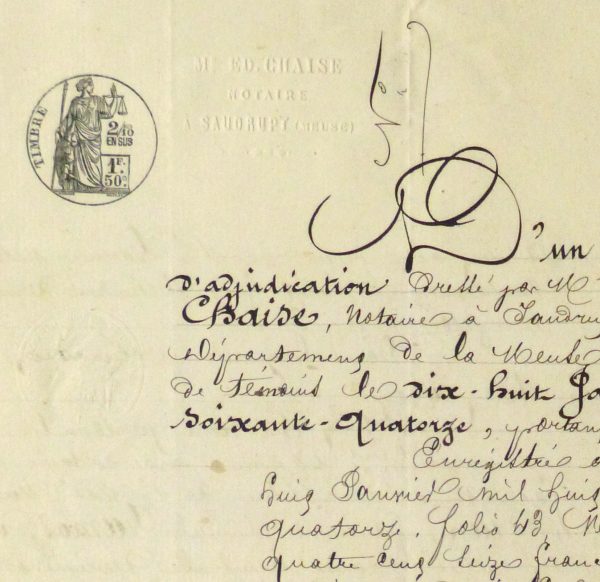 TIMBRE
2/10
EN SUS
1 F.
50 c.
Me ED. CHAISE
NOTAIRE
À SAUDRUPT (MEUSE)
No
D'un
d'adjudication dressé par M
Chaise, Notaire à Saudru
Département de la Meuse
de témoins le dix-huit Ja
soixante-quatorze, portan
Enregistré
huit Janvier mil huit
quatorze. folio 43,
quatre cent seize franc